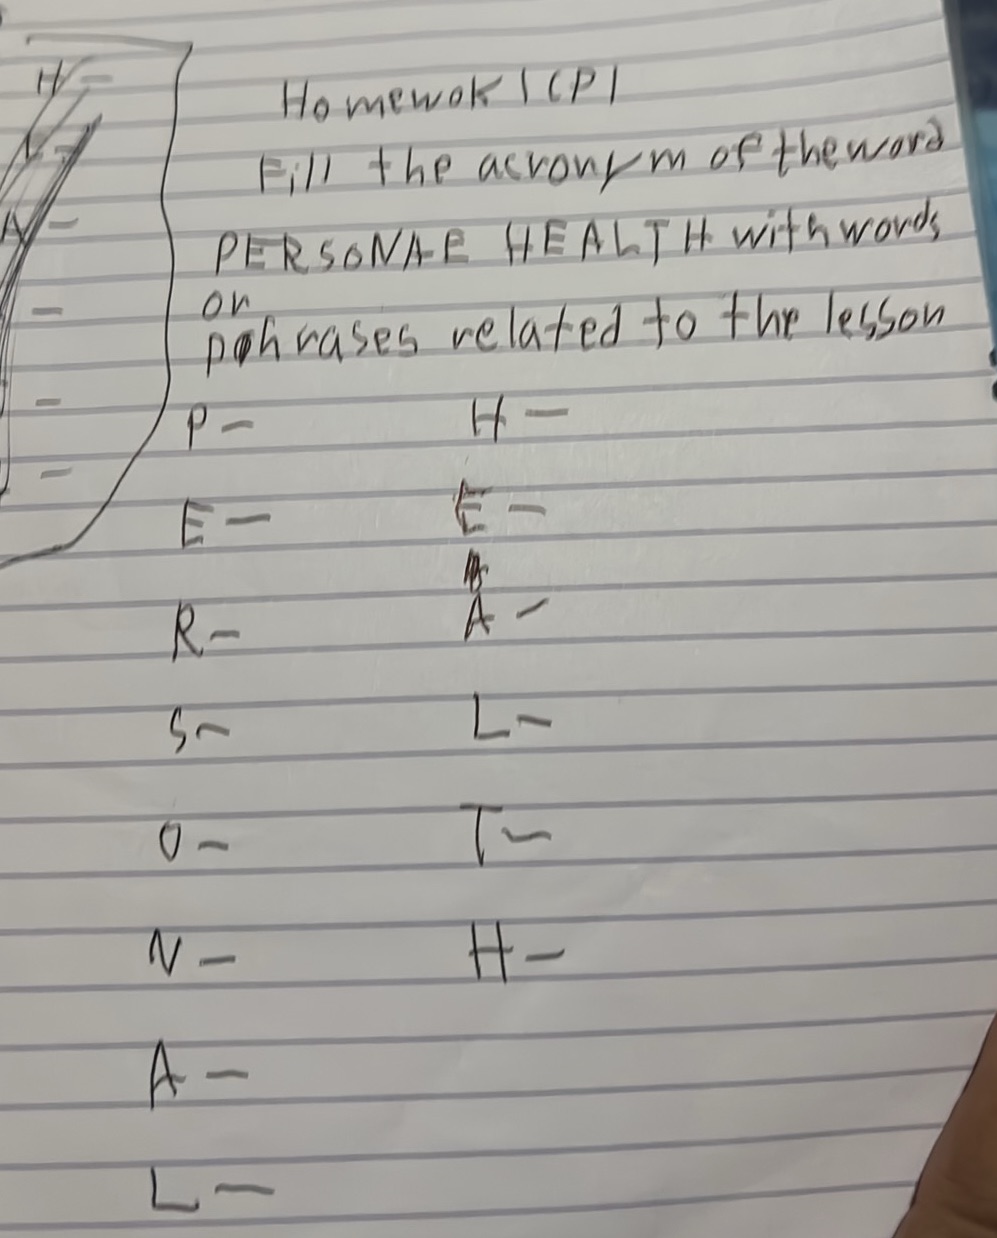 H -
A -
-
-
-
Homewok 1 (P)
Fill the acronym of the word
PERSONAL HEALTH with words
or
phrases related to the lesson
P -
E -
R -
S -
O -
N -
A -
L -
H -
E -
A -
L -
T -
H -